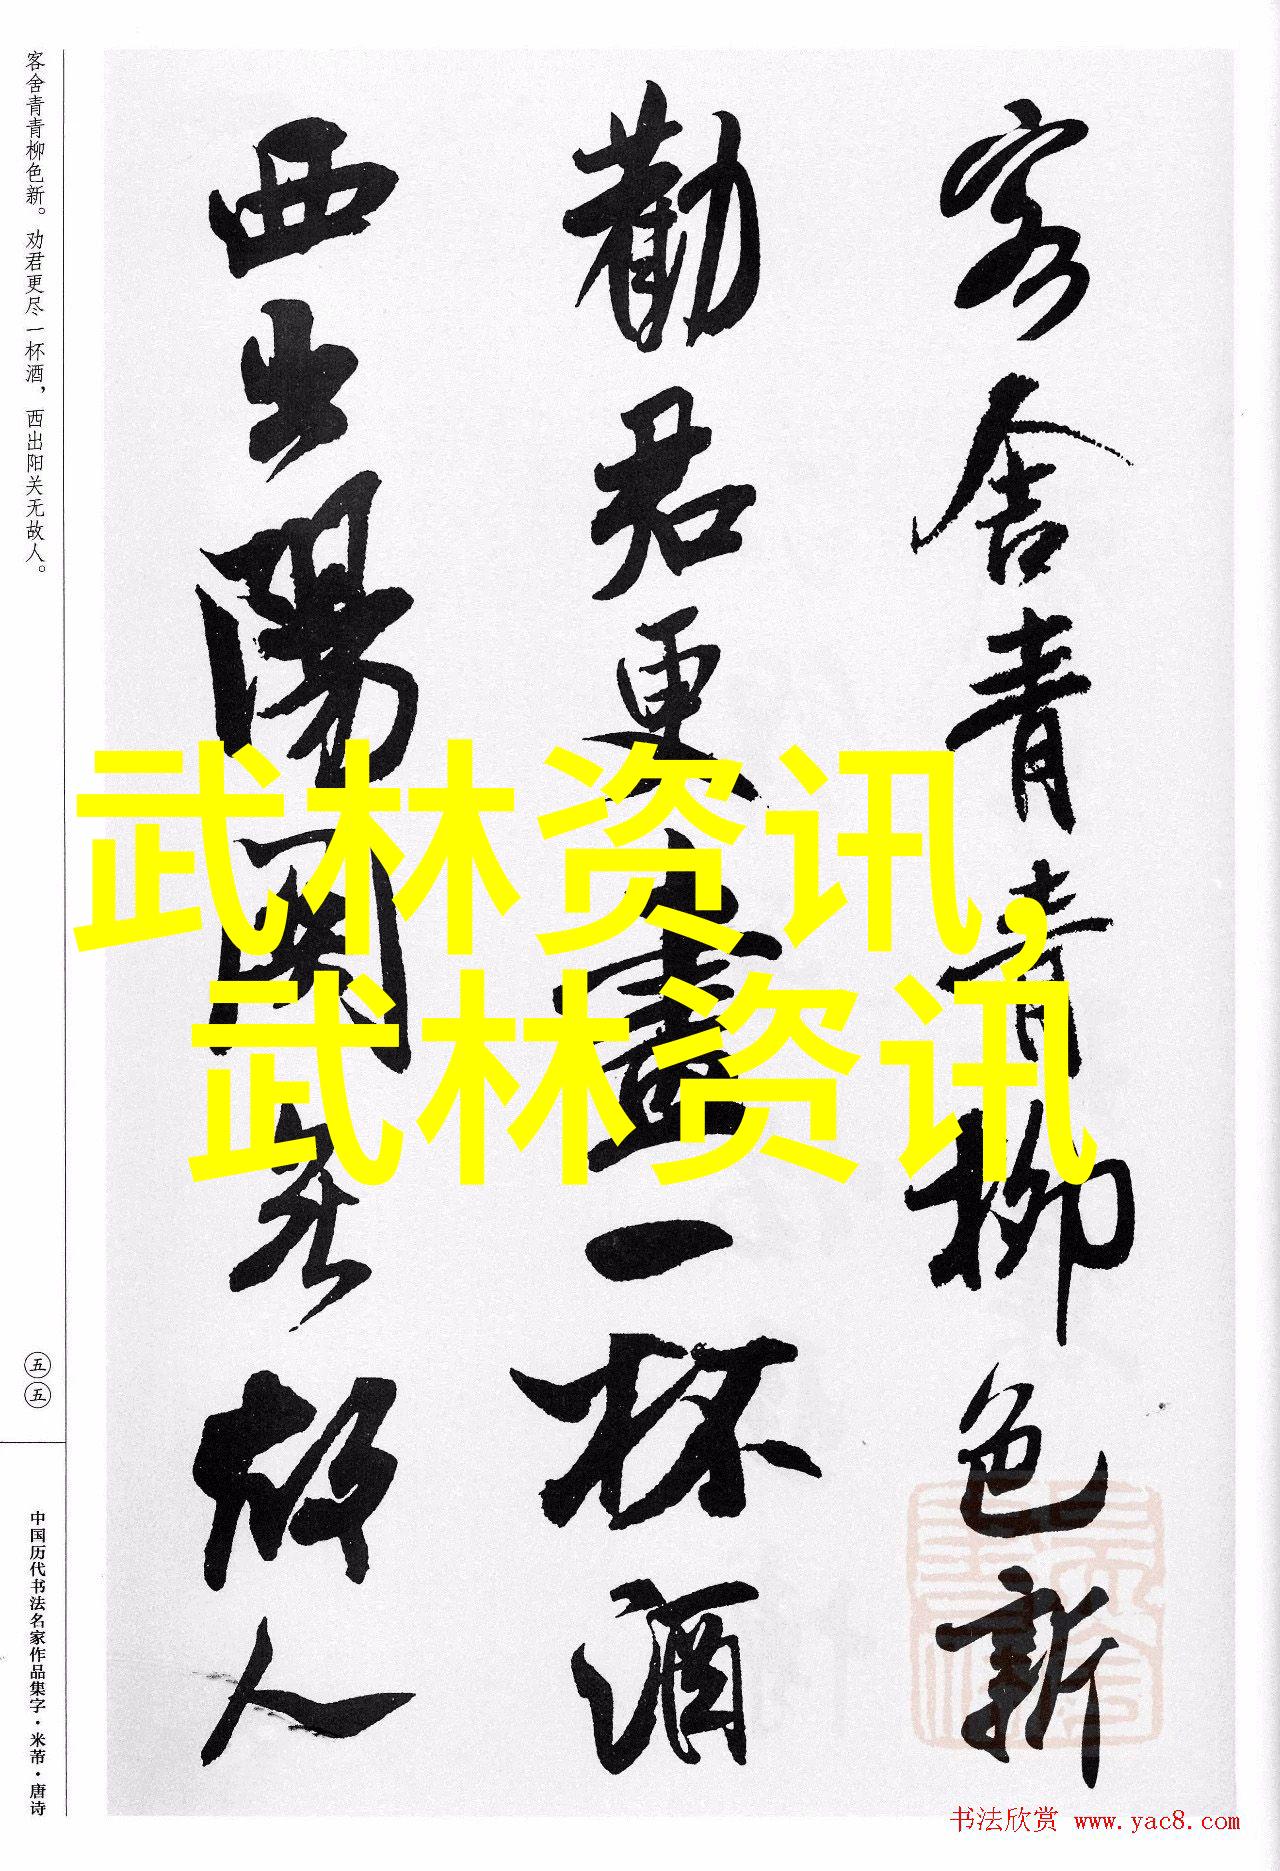 客舍青青柳色新
勸君更盡一杯酒
西出陽關無故人
武林资讯,
武林资讯
客舍青青柳色新。劝君更尽一杯酒，西出阳关无故人。
五五
中国历代书法名家作品集字·米芾·唐诗
书法欣赏 www.yac8.com